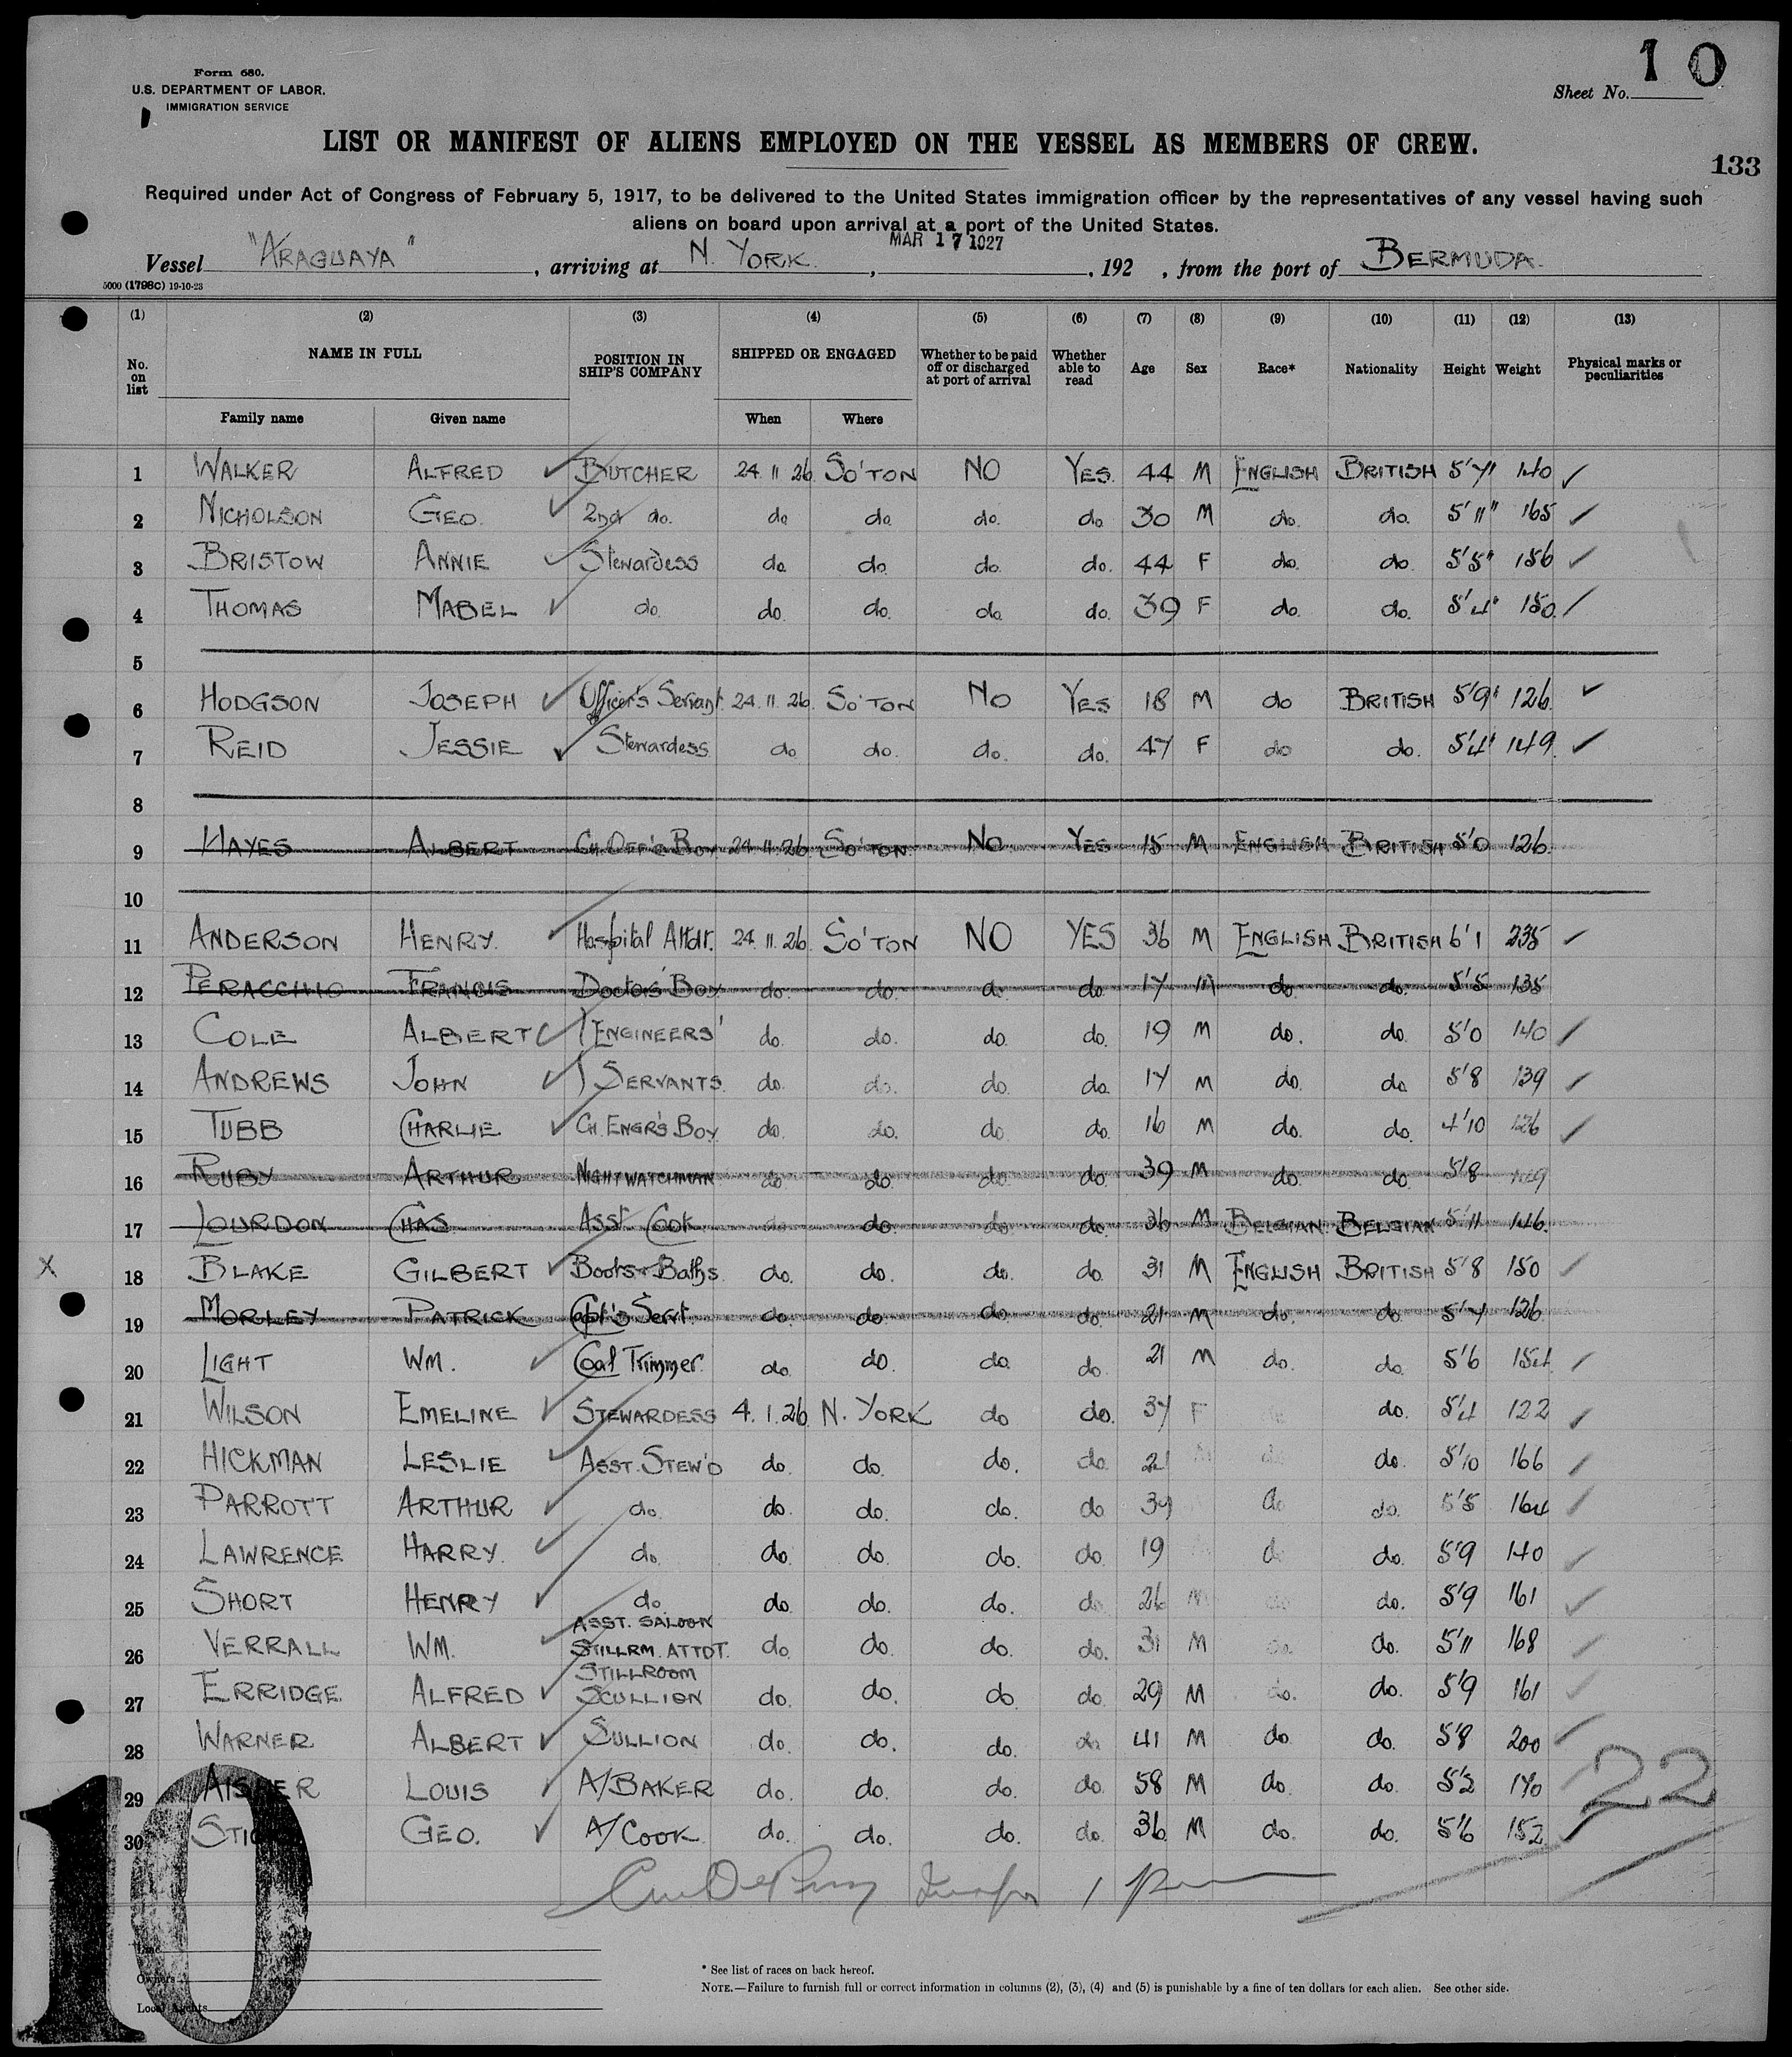 Form 680.
U.S. DEPARTMENT OF LABOR.
IMMIGRATION SERVICE
Sheet No. 10
LIST OR MANIFEST OF ALIENS EMPLOYED ON THE VESSEL AS MEMBERS OF CREW.
133
Required under Act of Congress of February 5, 1917, to be delivered to the United States immigration officer by the representatives of any vessel having such
aliens on board upon arrival at a port of the United States.
MAR 17 1927
Vessel "ARAGUAYA", arriving at N. YORK., , 192 , from the port of BERMUDA.
5000 (1798C) 19-10-23
(1) (2) (3) (4) (5) (6) (7) (8) (9) (10) (11) (12) (13)
No. on list NAME IN FULL POSITION IN SHIP'S COMPANY SHIPPED OR ENGAGED Whether to be paid off or discharged at port of arrival Whether able to read Age Sex Race* Nationality Height Weight Physical marks or peculiarities
Family name Given name When Where
1 WALKER ALFRED BUTCHER 24.11.26 SO'TON NO YES. 44 M ENGLISH BRITISH 5'7" 140
2 NICHOLSON GEO. 2nd do. do do. do. do. 30 M do. do. 5'11" 165
3 BRISTOW ANNIE Stewardess do. do. do. do. 44 F do. do 5'5" 156
4 THOMAS MABEL do. do. do. do. do. 39 F do. do. 5'4" 150.
5
6 HODGSON JOSEPH Officer's Servant. 24.11.26. SO'TON NO YES 18 M do BRITISH 5'9" 126.
7 REID JESSIE Stewardess. do do. do. do. 47 F do do. 5'4" 149.
8
9 HAYES ALBERT CH. OFF'S BOY 24.11.26. SO'TON. NO. YES 15 M ENGLISH BRITISH 5'0 126.
10
11 ANDERSON HENRY. Hospital Attdt. 24.11.26. SO'TON NO YES 36 M ENGLISH BRITISH 6'1 235
12 PERACCHIO FRANCIS Doctors' Boy do. do. do. do. 17 M do. do. 5'5 135
13 COLE ALBERT ) ENGINEERS' do. do. do. do. 19 M do. do. 5'0 140
14 ANDREWS JOHN ) SERVANTS. do. do. do. do. 17 M do. do 5'8 139
15 TUBB CHARLIE CH. ENGR'S BOY. do. do. do. do. 16 M do. do. 4'10 126
16 RUBY ARTHUR NIGHTWATCHMAN do do. do. do. 39 M do. do. 5'8
17 CHAS Asst. Cook do. do. do. 36 M BELGIAN BELGIAN 5'11 146.
X 18 BLAKE GILBERT Boots & Baths. do. do. do. do. 31 M ENGLISH BRITISH 5'8 150
19 MORLEY PATRICK Capt's Servt. do. do. do. do. 21 M do. do. 5'7 126.
20 LIGHT WM. Coal Trimmer. do. do. do. do. 21 M do. do. 5'6 154
21 WILSON EMELINE STEWARDESS 4.1.26. N. YORK do do. 37 F do. 5'4 122
22 HICKMAN LESLIE ASST. STEW'D do. do. do. do. 21 do. 5'10 166
23 PARROTT ARTHUR do. do. do. do. do 39 do do. 5'5 164
24 LAWRENCE HARRY. do. do. do. do. do. 19 do. 5'9 140
25 SHORT HENRY do. do. do. do. do 26 M do. 5'9 161
26 VERRALL WM. ASST. SALOON STILLRM. ATTDT. do. do. do. do. 31 M do. do. 5'11 168
27 ERRIDGE. ALFRED STILLROOM SCULLION do. do. do do. 29 M do. do. 5'9 161
28 WARNER ALBERT SULLION do. do. do. do 41 M do do. 5'8 200
29 AISHER LOUIS A/BAKER do. do. do. do. 58 M do. do. 5'2 170
30 GEO. A/COOK. do. do. do. do. 36 M do. do. 5'6 152
22
10
Owners
Local Agents
* See list of races on back hereof.
NOTE.—Failure to furnish full or correct information in columns (2), (3), (4) and (5) is punishable by a fine of ten dollars for each alien. See other side.